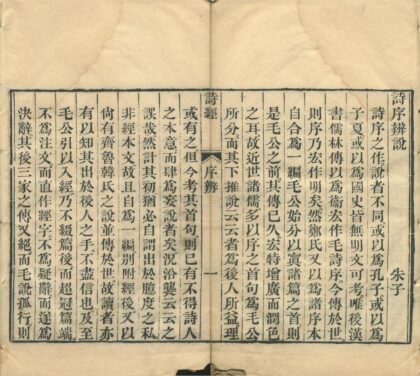 詩序辨說
朱子
詩序之作說者不同或以爲孔子或以爲
子夏或以爲國史皆無明文可考唯後漢
書儒林傳以爲衞宏作毛詩序今傳於世
則序乃宏作明矣然鄭氏又以爲諸序本
自合爲一編毛公始分以寘諸篇之首則
是毛公之前其傳已久宏特增廣而潤色
之耳故近世諸儒多以序之首句爲毛公
所分而其下推說云云者爲後人所益理
詩經
序辨
一
或有之但今考其首句則已有不得詩人
之本意而肆爲妄說者矣況沿襲云云之
誤哉然計其初猶必自謂出於臆度之私
非經本文故且自爲一編別附經後又以
尙有齊魯韓氏之說並傳於世故讀者亦
有以知其出於後人之手不盡信也及至
毛公引以入經乃不綴篇後而超冠篇端
不爲注文而直作經字不爲疑辭而遂爲
決辭其後三家之傳又絕而毛說孤行則